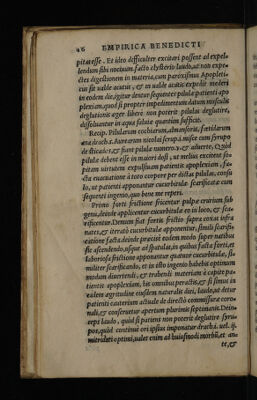 46 EMPIRICA BENEDICTI
pitatesse. Et ideo difficulter excitari possent ad expel-
lendum sibi nocituum. facto clysterio lauab. aut non expe-
ctes digestionem in materia, cum paroxismus Apopleti-
cus sit valde acutus, & in valde acutis expedit mederi
in eodem die. igitur dentur sequentes pilulæ patienti apo
plexiam. quod si propter impedimentum datum musculis
deglutionis æger libere non poterit pilulas deglutire,
dissoluantur in aqua saluiæ quantum sufficit.
Recip. Pilularum cochiarum, almansoris, fœtidarum
ana drach. Auerarum nicolai scrup. à. misce cum syrupo
de sticade: & fiant pilulæ numero. & aduerte. Quod
pilula debent esse in maiori dosi, vt melius excitent so-
pitam virtutem expulsiuam patientis apoplexiam. fa-
cta euacuatione à toto corpore per dictas pilulas, consu-
lo, vt patienti apponantur cucurbitulæ scarificatæ cum
sequenti ingenio, quo bene me reperi.
Primo forti frictione fricentur pulpæ crurium sub
genu, deinde applicentur cucurbitulæ eo in loco, & sca-
rificentur. Demum fiat fortis frictio supra coxas infra
nates, & iterato cucurbitulæ apponentur, simili scarifi-
catione facta. deinde procisus eodem modo super natibus
sic ascendendo, vsque ad spatulas, in quibus facta forti, et
fastidiosa frictione apponantur quatuor cucurbitulæ, si-
militer scarificando, et in isto ingenio habebis optimum
modum diuertendi, & trahendi materiam à capite pa-
tientis apoplexiam, his omnibus peractis, & si simus in
eadem ægritudine eiusdem naturalis diei, laudo, vt detur
patienti cauterium actuale de directo commissuræ coro-
nali, & conseruetur apertum pluribus septimanis. Dein-
cepi laudo, quod si patiens non poterit deglutire syru-
pos, quod continue ori ipsius imponatur drach. à. vel. ij.
mitridati optimi, valet enim ad huiusmodi morbũ, et an
te, &